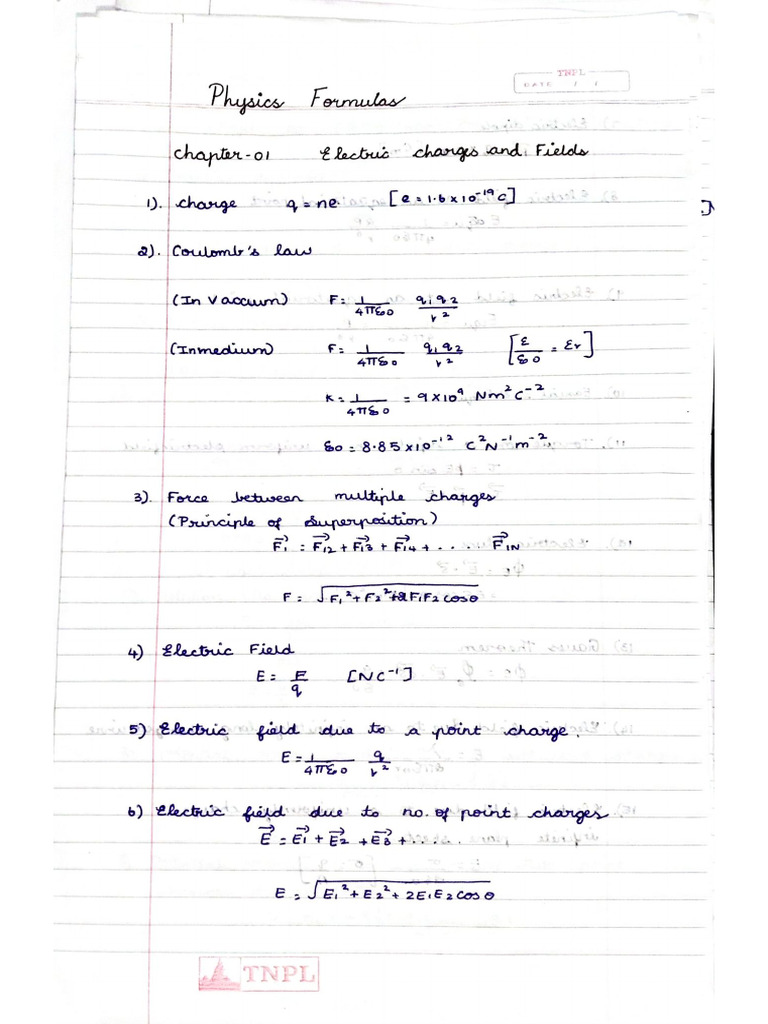 TNPL
DATE / /
Physics Formulas
Chapter-01 Electric charges and Fields
1). charge q = ne [e = 1.6 x 10⁻¹⁹ C]
2). Coulomb's law
(In Vaccum) F = 1/4πε0 q1q2/r²
(Inmedium) F = 1/4πε0 q1q2/r² [ε/ε0 = εr]
K = 1/4πε0 = 9 x 10⁹ Nm²C⁻²
ε0 = 8.85 x 10⁻¹² C²N⁻¹m⁻²
3). Force between multiple charges
(Principle of Superposition)
F⃗1 = F⃗12 + F⃗13 + F⃗14 + . . . . F⃗1N
F = √F1² + F2² + 2F1F2 cosθ
4) Electric Field
E = F/q [NC⁻¹]
5) Electric field due to a point charge.
E = 1/4πε0 q/r²
6) Electric field due to no. of point charges
E⃗ = E⃗1 + E⃗2 + E⃗3 + . . . .
E = √E1² + E2² + 2E1E2 cosθ
TNPL